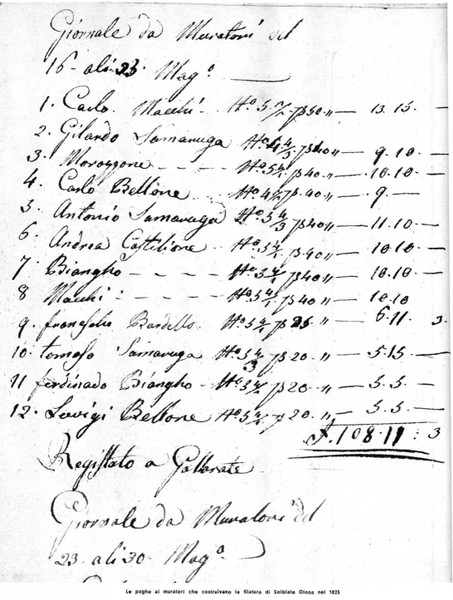 Giornale da Muratori del
16. ali 23 Mag.º
1. Carlo. Macchi. Nº 5 β 50 " — 13. 15. —
2. Gilardo Samaruga Nº β 40 " — 9. 10. —
3. Morozzone Nº 5 β 40 " — 10. 10. —
4. Carlo Bellone Nº 4 1/2 β 40 " — 9. —
5. Antonio Samaruga Nº 5 β 40 " — 11. 10 —
6. Andrea Castilione Nº 5 β 40 " — 10. 10 —
7. Biangho Nº 5 β 40 " — 10. 10. —
8 Macchi: Nº 5 β 40 " — 10. 10
9. Bardello Nº 5 β 25 " — 6. 11. 3.
10. tomaso Samaruga Nº 5 β 20. " — 5. 15. —
11 ferdinado Biangho Nº 5 β 20 " — 5. 5 —
12. Luvigi Bellone Nº 5 β 20 " — 5. 5. —
108. 11 : 3
Registato a Gallarate
Giornale da Muratori del
23. ali 30. Mag.º
Le paghe ai muratori che costruivano la filatura di Solbiate Olona nel 1825